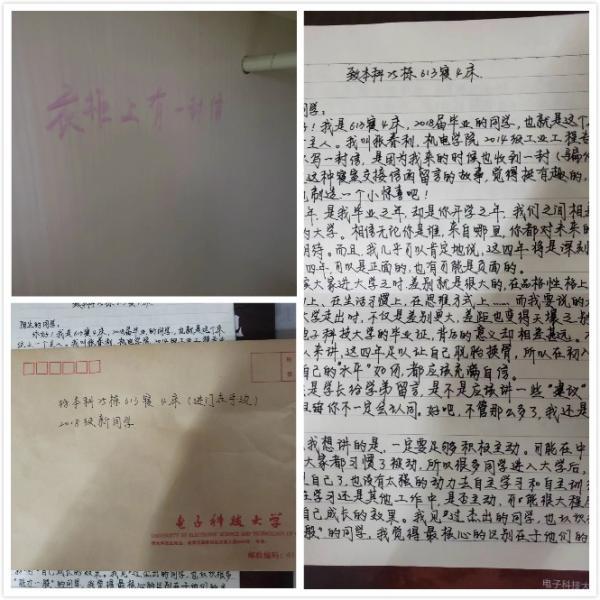 衣柜上有一封信
致本科25栋613寝4床
陌生的同学：
致本科25栋613寝4床（进门左手边）
2018级新同学
电子科技大学
UNIVERSITY OF ELECTRONIC SCIENCE AND TECHNOLOGY OF
邮政编码：
致本科25栋613寝4床
同学：
！我是613寝4床，2018届毕业的同学，也就是这个
主人。我叫张春利，机电学院2014级工业工程专
写一封信，是因为我来的时候也收到一封
这种寝室交接信函留言的故事，觉得挺有趣的，
也制造一个小惊喜吧！
年，是我毕业之年，却是你开学之年，我们之间相差
的大学。相信无论你是谁，来自哪里，你都对未来的
期待。而且，我几乎可以肯定地说，这四年将是深刻
四年，可以是正面的，也有可能是负面的。
家大家进大学之时，差别就是很大的，在品格性格上
上，在生活习惯上，在思维方式上……而我要说的
大学走出时，不仅是差别更大，差距也变得天壤之别
电子科技大学的毕业证，背后的意义却相差甚远。
人来讲，这四年足以让自己脱胎换骨，所以在初入
自己的水平”如何，都应该充满自信。
是学长给学弟留言，是不是应该讲一些“建议”
但每你不一定会认同。好吧，不管那么多了，我还是
我想讲的是，一定要足够积极主动。可能在中
大家都习惯了被动，所以很多同学进入大学后，
自己了，也没有太强的动力去自主学习和自主训
在学习还是其他工作中，是否主动，可能很大程度
自己成长的效果。我见过杰出的同学，也认识
般”的同学，我觉得最核心的区别在于他们的
电子科技大